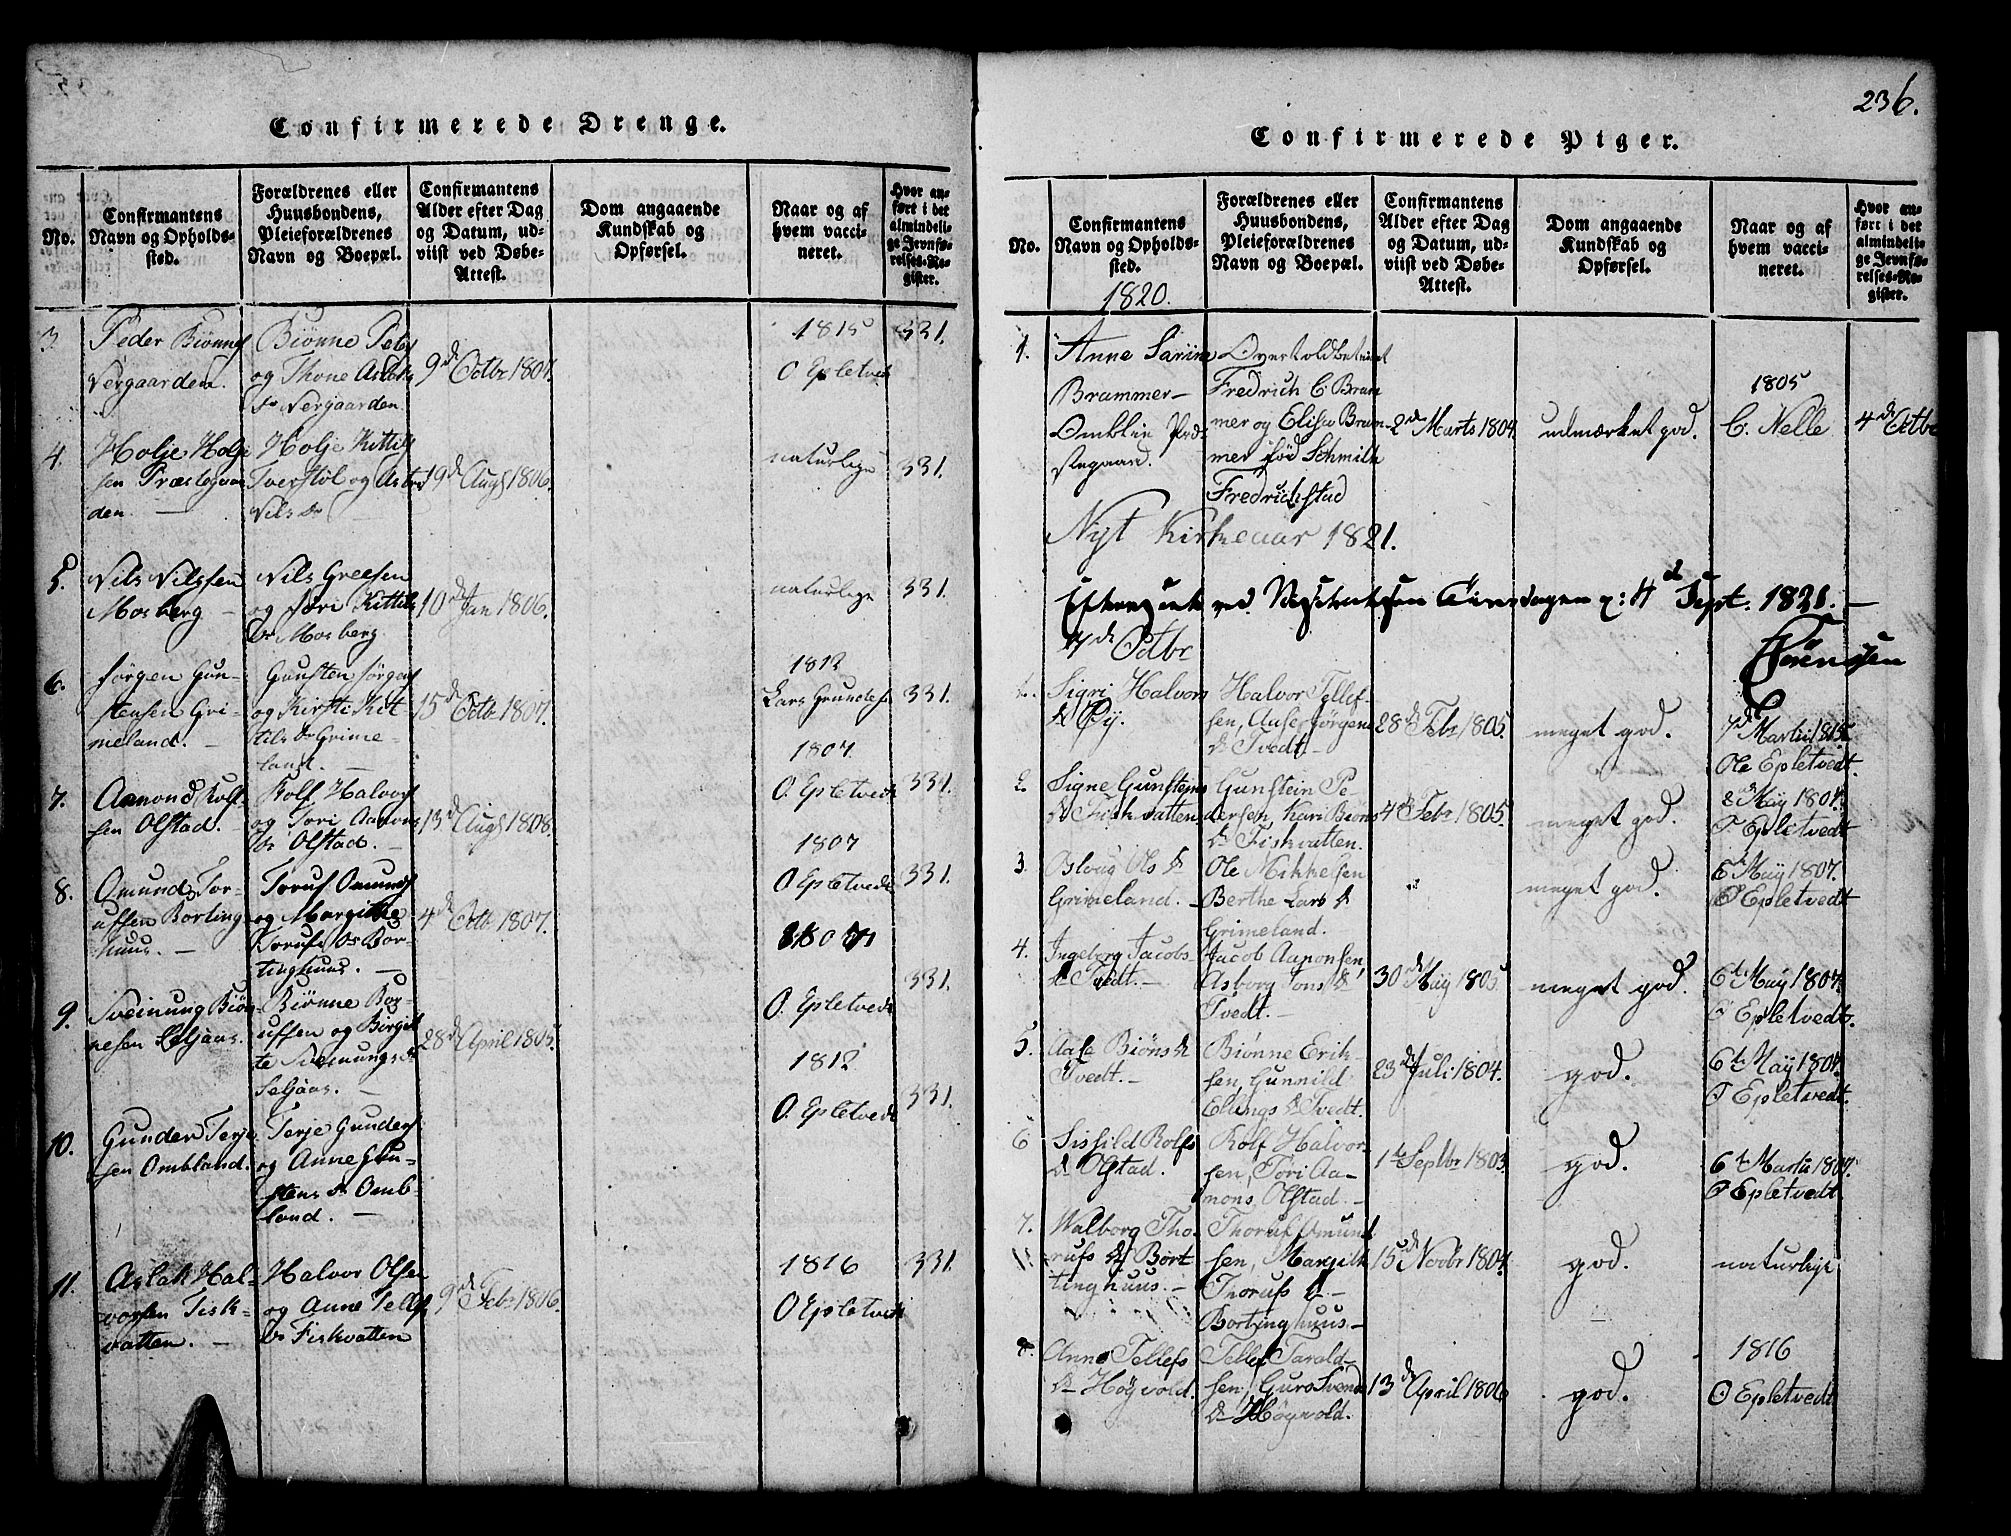 Confirmerede Drenge.
No.
Confirmantens
Navn og Opholds-
sted.
Forældrenes eller
Huusbondens,
Pleieforældrenes
Navn og Boepæl.
Confirmantens
Alder efter Dag
og Datum, ud-
viist ved Døbe-
Attest.
Dom angaaende
Kundskab og
Opførsel.
Naar og af
hvem vacci-
neret.
Hvor an-
ført i det
almindeli-
ge Jevnfø-
relses-Re-
gister.
3.
Peder Biønnes
Nergaarden.
Biønne Peders
og Thone Aslaks
Dr Nergaarden.
9de Octbr 1807.
1815
O Epletvedt
331.
4.
Holje Holje
sen Præstegaar
den. —
Holje Kittils
Tverstöl og
Nils Dr
19de Augs 1806.
naturlige
331.
5.
Nils Nilssen
Mosberg —
Nils Greesen
og Jøri Kittils
Dr Mosberg.
10de Jan 1806.
naturlige
331.
6.
Jørgen Gun-
stensen Gri-
meland. —
Gunsten Jørgens
og Kirsti Kit
tils Dr Grime-
land. —
15de Octbr 1807.
1812
Lars Grundese
331.
7.
Aamond Rolf-
sen Olstad. —
Rolf Halvors
og Tori Aamons
Dr Olstad. —
13de Augs 1808.
1807.
O. Epletvedt
331.
8.
Omund Tor-
ufsen Borting
huus. —
Toruf Omunds
og Margithe
Torufs Dr Bor-
tinghuus. —
4de Octb 1807.
1807
O Epletvedt
331.
9.
Sveinung Biøn
nesen Seljaas.
Biønne Bor
ufsen og Birgit
te Sveinungs Dr
Seljaas. —
28de April 1805.
1807
O. Epletvedt
331.
10.
Gunder Terje
sen Ombland.
Terje Gunders
og Anne Gun-
stens Dr Omb-
land. —
1812
O. Epletvedt
331.
11.
Aslak Hal-
vorsen Fisk-
vatten. —
Halvor Olsen
og Anne Tellefs
Dr Fiskvatten
9de Febr 1806.
1816
O Epletvedt
331.
236.
Confirmerede Piger.
No.
Confirmantens
Navn og Opholds-
sted.
Forældrenes eller
Huusbondens,
Pleieforældrenes
Navn og Boepæl.
Confirmantens
Alder efter Dag
og Datum, ud-
viist ved Døbe-
Attest.
Dom angaaende
Kundskab og
Opførsel.
Naar og af
hvem vacci-
neret.
Hvor an-
ført i det
almindelig-
ge Jevnfø-
relses-Re-
gister.
1820.
1.
Anne Sarine
Brammer —
Omblie Præ-
stegaard.
Overtoldbetient
Fredrich C Bram
mer og Elisa Bram-
mer fød Schmith
Fredrichstad
2de Marts 1804.
udmærket god.
1805
C. Nelle
4de Octbr
Nyt Kirkeaar 1821.
Efterseet ved Visitatsen Tirsdagen : 4d Sept. 1821. —
Sørensen
7de Octbr
1.
Sigri Halvors
Dr Øij.
Halvor Tellef
sen, Aase Jørgens
Dr Tvedt. —
28de Febr 1805.
meget god.
7de Martii 1815
Ole Epletvedt.
2.
Signe Gunsteins
Dr Fiskvatten.
Gunstein Pe-
dersen, Kari Biøns
Dr Fiskvatten.
4de Febr 1805.
meget god.
2de Maÿ 1807.
O Epletvedt
3.
Oslaug Ols Dr
Grimeland. —
Ole Mikkelsen
Berthe Lars Dr
Grimeland. —
meget god.
6 Maÿ 1807.
O Epletvedt
4.
Ingeborg Jacobs
Dr Tvedt. —
Jacob Aanonsen
Asborg Tons Dr
Tvedt. —
30de May 1805
meget god.
6te Maÿ 1807.
O Epletvedt.
5.
Aase Biøns Dr
Tvedt. —
Biønne Erik-
sen, Gunnild
Ellings Dr Tvedt.
23de Juli 1804.
god.
6te Maÿ 1807.
O Epletvedt.
6
Sissild Rolfs
Dr Olstad.
Rolf Halvor
sen, Tori Aa-
mons, Olstad. —
1te Septbr 1803.
god.
6te Martii 1807.
O Epletvedt
7.
Walborg Tho-
rufs Dr Bort
tinghuus. —
Thoruf Omund
sen, Margith
Thorufs Dr —
Bortinghuus —
15de Novbr 1804.
god.
naturlige
8.
Anne Tellefs
Dr Høgvold.
Tellef Tarald-
sen, Guro Svends
Dr Høgvold.
13de April 1806
god.
1816
O Epletvedt